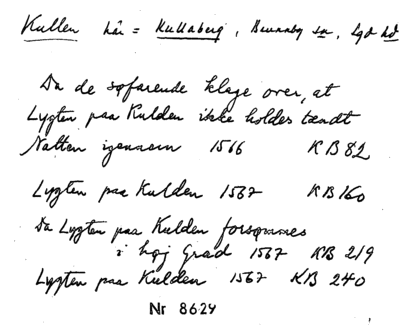 Kullen här = Kullaberg, Brunnby sn, Lgd hd
Da de søfarende klage over, at
Lygten paa Kulden ikke holdes tændt
Natten igennem 1566 KB 82
Lygten paa Kulden 1567 KB 160
Da Lygten paa Kulden forsømmes
i høj Grad 1567 KB 219
Lygten paa Kulden 1567 KB 240
Nr 8629